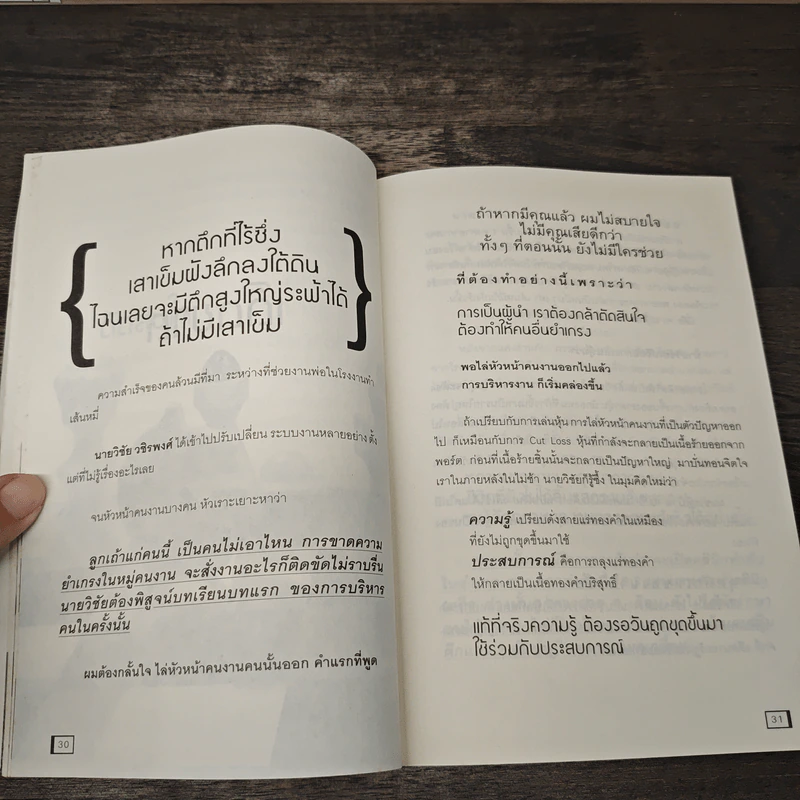 หากตึกที่ไร้ซึ่ง
เสาเข็มฝังลึกลงใต้ดิน
ไฉนเลยจะมีตึกสูงใหญ่ระฟ้าได้
ถ้าไม่มีเสาเข็ม
ความสำเร็จของคนล้วนมีที่มา ระหว่างที่ช่วยงานพ่อในโรงงานทำ
เส้นหมี่
นายวิชัย วชิรพงศ์ ได้เข้าไปปรับเปลี่ยน ระบบงานหลายอย่าง ตั้ง
แต่ที่ไม่รู้เรื่องอะไรเลย
จนหัวหน้าคนงานบางคน หัวเราะเยาะหาว่า
ลูกเถ้าแก่คนนี้ เป็นคนไม่เอาไหน การขาดความ
ยำเกรงในหมู่คนงาน จะสั่งงานอะไรก็ติดขัดไม่ราบรื่น
นายวิชัยต้องพิสูจน์บทเรียนบทแรก ของการบริหาร
คนในครั้งนั้น
ผมต้องกลั้นใจ ไล่หัวหน้าคนงานคนนั้นออก คำแรกที่พูด
30
ถ้าหากมีคุณแล้ว ผมไม่สบายใจ
ไม่มีคุณเสียดีกว่า
ทั้งๆ ที่ตอนนั้น ยังไม่มีใครช่วย
ที่ต้องทำอย่างนี้เพราะว่า
การเป็นผู้นำ เราต้องกล้าตัดสินใจ
ต้องทำให้คนอื่นยำเกรง
พอไล่หัวหน้าคนงานออกไปแล้ว
การบริหารงาน ก็เริ่มคล่องขึ้น
ถ้าเปรียบกับการเล่นหุ้น การไล่หัวหน้าคนงานที่เป็นตัวปัญหาออก
ไป ก็เหมือนกับการ Cut Loss หุ้นที่กำลังจะกลายเป็นเนื้อร้ายออกจาก
พอร์ต ก่อนที่เนื้อร้ายชิ้นนั้นจะกลายเป็นปัญหาใหญ่ มาบั่นทอนจิตใจ
เราในภายหลังในไม่ช้า นายวิชัยก็รู้ซึ้ง ในมุมคิดใหม่ว่า
ความรู้ เปรียบดั่งสายแร่ทองคำในเหมือง
ที่ยังไม่ถูกขุดขึ้นมาใช้
ประสบการณ์ คือการถลุงแร่ทองคำ
ให้กลายเป็นเนื้อทองคำบริสุทธิ์
แท้ที่จริงความรู้ ต้องรอวันถูกขุดขึ้นมา
ใช้ร่วมกับประสบการณ์
31